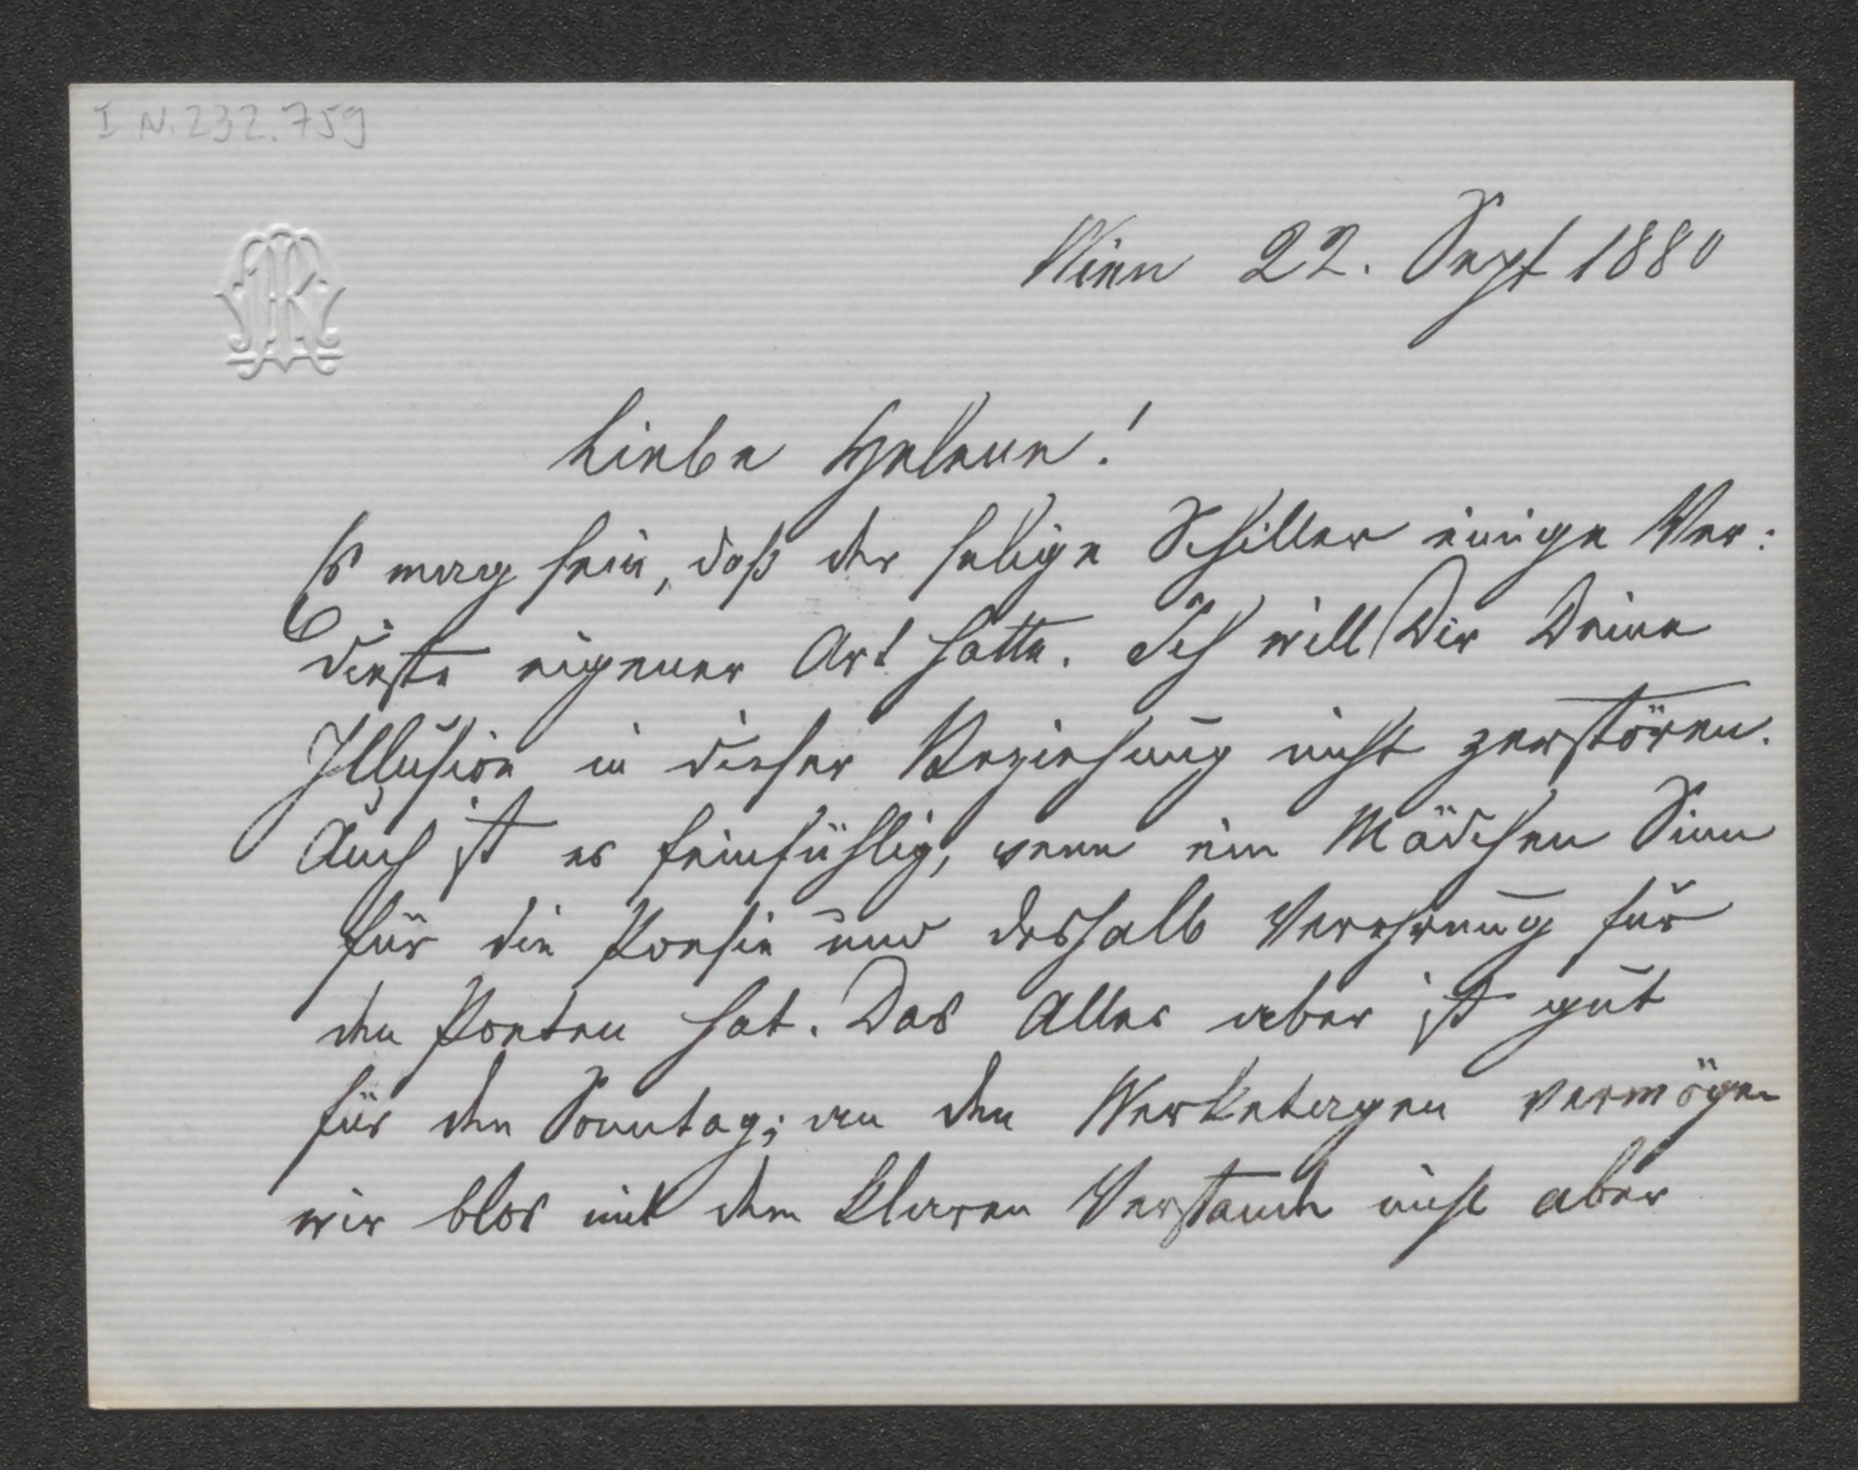 I N. 232.759
Wien 22. Sept 1880
Liebe Helene!
Es mag sein, daß der selige Schiller einige Ver:
dienste eigener Art hatte. Ich will Dir Deine
Illusion in dieser Beziehung nicht zerstören.
Auch ist es feinfühlig, wenn ein Mädchen Sinn
für die Poesie und deshalb Verehrung für
den Poeten hat. Das Alles aber ist gut
für den Sonntag; an den Werketagen vermögen
wir blos mit dem klaren Verstande nicht aber